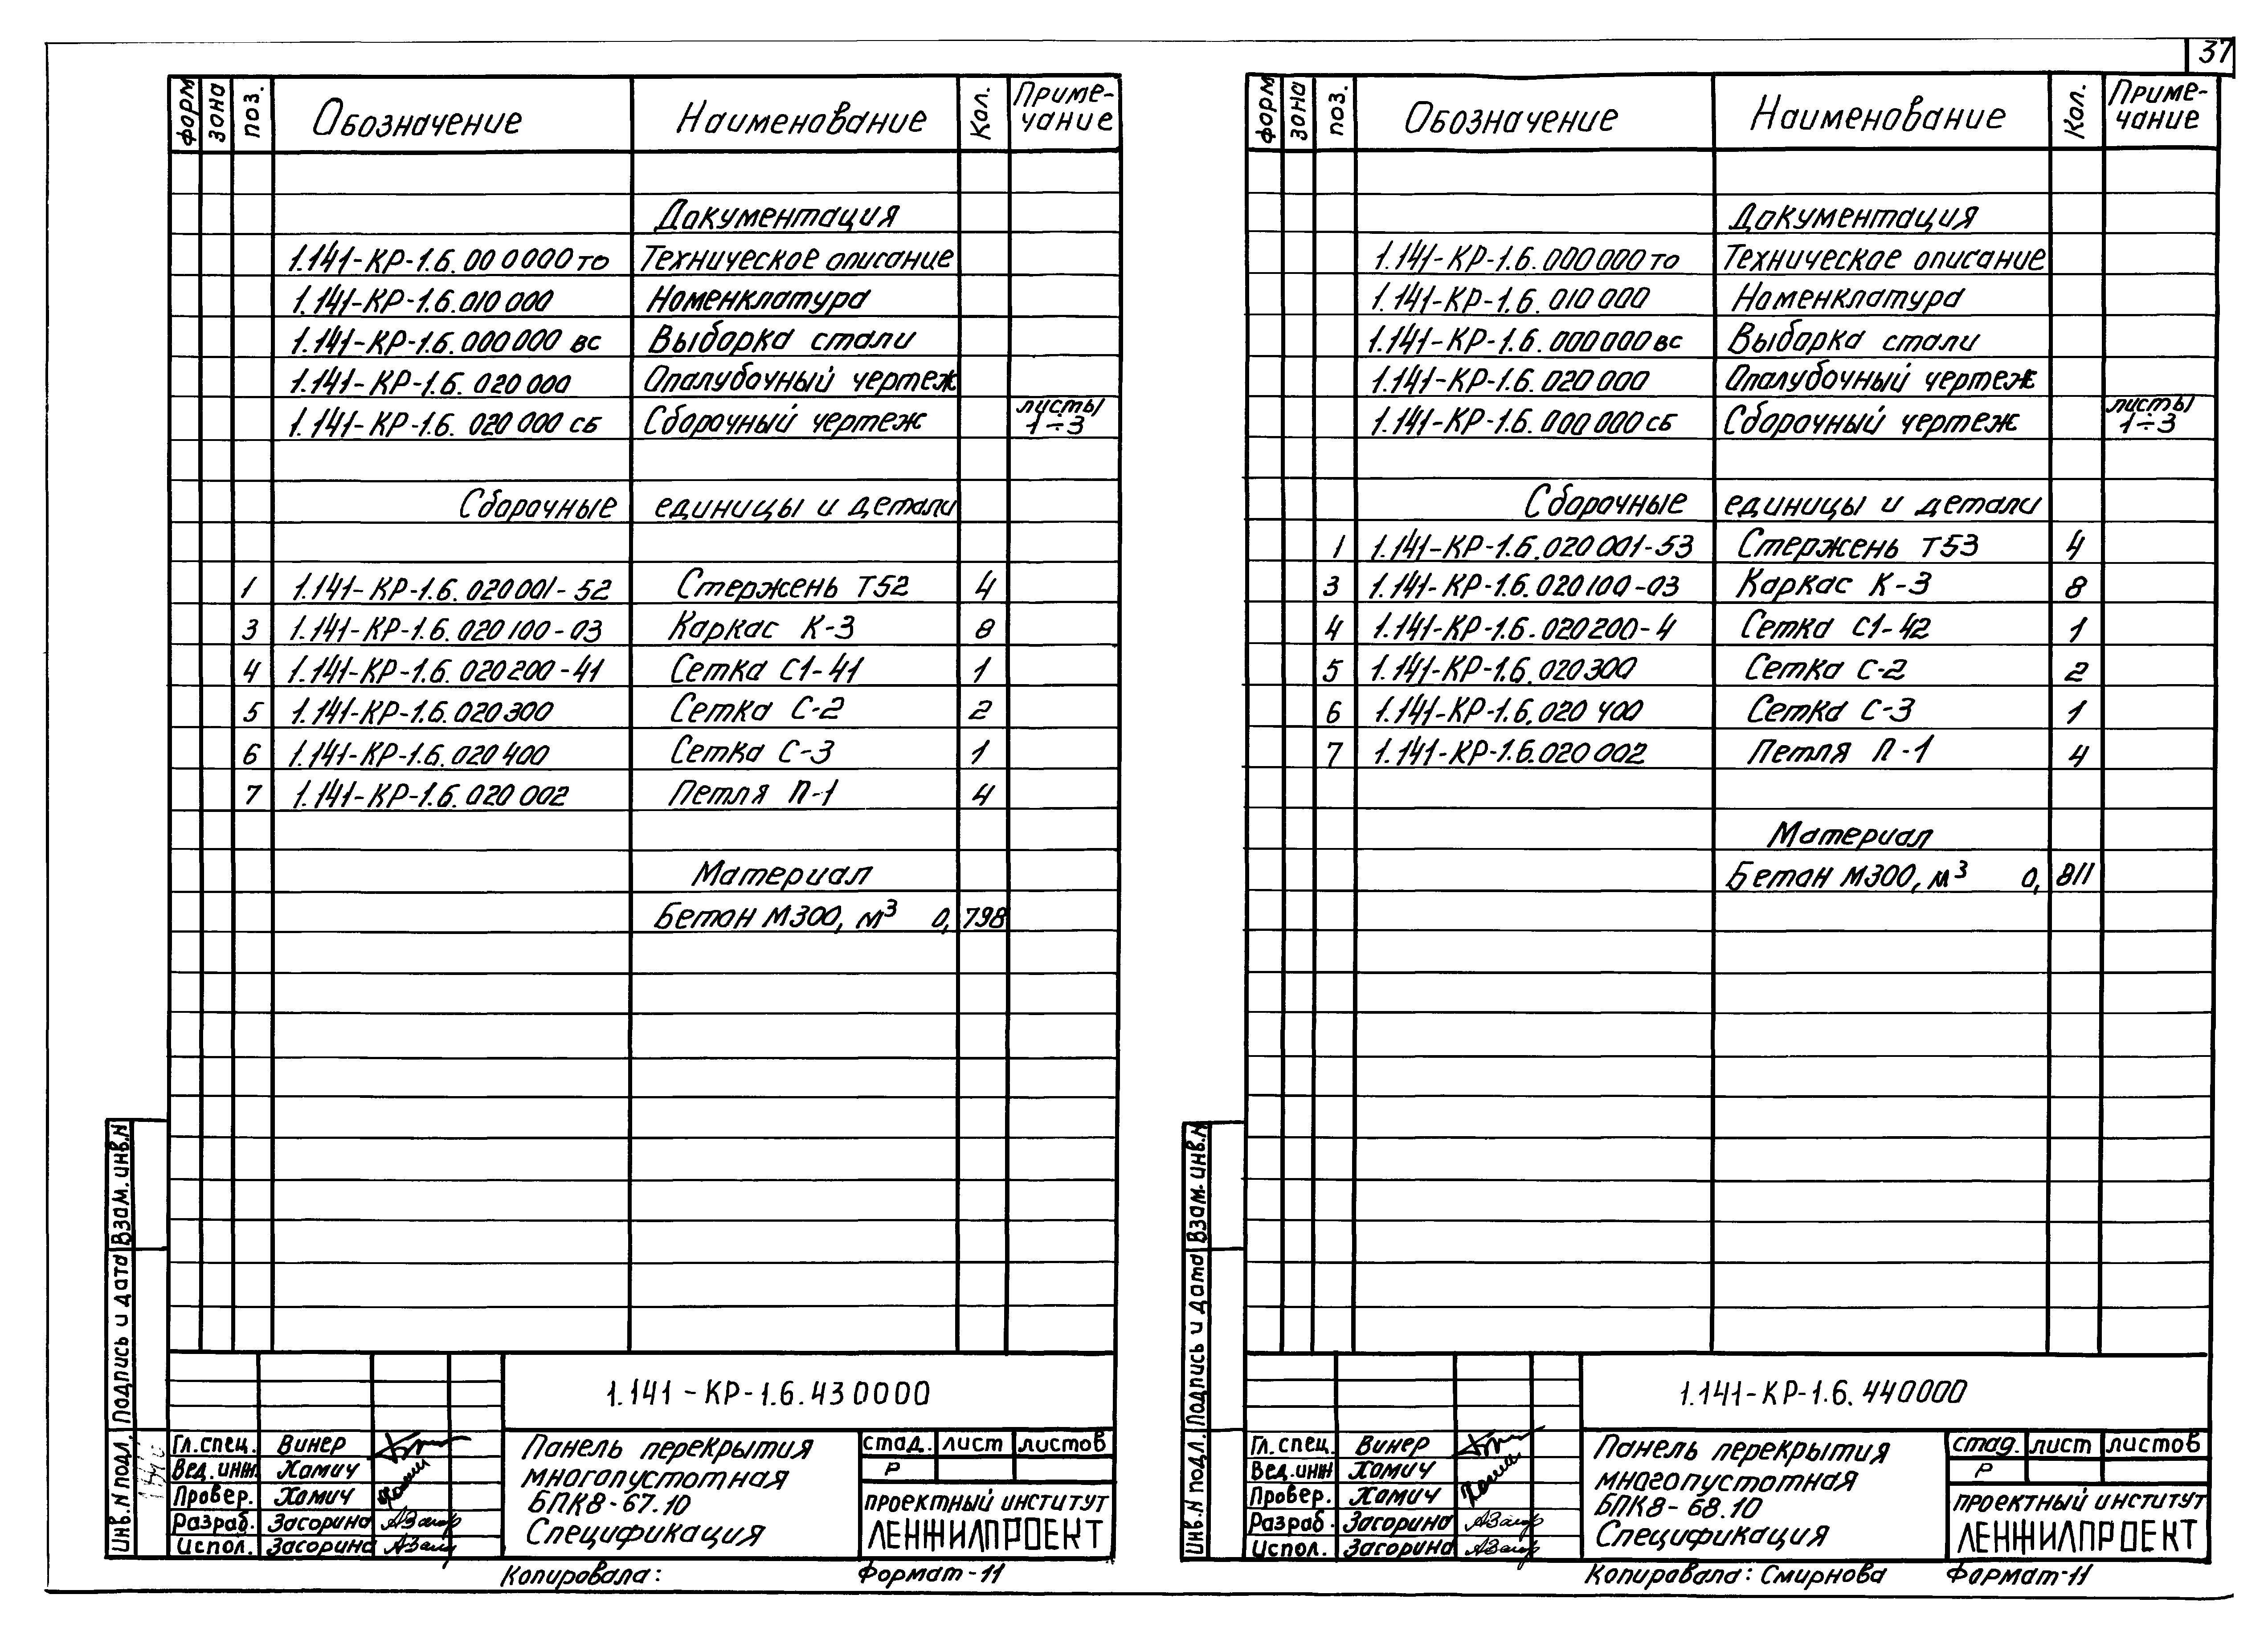 37
форм зона поз. Обозначение Наименование Кол. Приме-
чание
Документация
1.141-КР-1.6.000000 то Техническое описание
1.141-КР-1.6.010 000 Номенклатура
1.141-КР-1.6.000000 вс Выборка стали
1.141-КР-1.6. 020 000 Опалубочный чертеж
1.141-КР-1.6. 020 000 сб Сборочный чертеж листы
1÷3
Сборочные единицы и детали
1 1.141-КР-1.6.020001-52 Стержень Т52 4
3 1.141-КР-1.6.020100-03 Каркас К-3 8
4 1.141-КР-1.6.020200-41 Сетка С1-41 1
5 1.141-КР-1.6.020300 Сетка С-2 2
6 1.141-КР-1.6.020400 Сетка С-3 1
7 1.141-КР-1.6.020 002 Петля П-1 4
Материал
Бетон М300, м³ 0,798
Взам. инв.N
Подпись и дата
Инв.N подл.
1.141-КР-1.6.430000
Гл.спец. Винер
Вед.инж. Хамич
Провер. Хамич
Разраб. Засорина
Испол. Засорина
Панель перекрытия
многопустотная
БПК8-67.10
Спецификация
стад. лист листов
Р
ПРОЕКТНЫЙ ИНСТИТУТ
ЛЕНЖИЛПРОЕКТ
Копировала: Формат-11
форм зона поз. Обозначение Наименование Кол. Приме-
чание
Документация
1.141-КР-1.6.000000 то Техническое описание
1.141-КР-1.6.010 000 Номенклатура
1.141-КР-1.6.000000 вс Выборка стали
1.141-КР-1.6.020 000 Опалубочный чертеж
1.141-КР-1.6.000 000 сб Сборочный чертеж листы
1÷3
Сборочные единицы и детали
1 1.141-КР-1.6.020 001-53 Стержень Т53 4
3 1.141-КР-1.6.020100-03 Каркас К-3 8
4 1.141-КР-1.6.020200-4 Сетка С1-42 1
5 1.141-КР-1.6.020300 Сетка С-2 2
6 1.141-КР-1.6.020 400 Сетка С-3 1
7 1.141-КР-1.6.020 002 Петля П-1 4
Материал
Бетон М300, м³ 0,811
Взам. инв.N
Подпись и дата
Инв.N подл.
1.141-КР-1.6.440000
Гл.спец. Винер
Вед.инж Хамич
Провер. Хамич
Разраб. Засорина
Испол. Засорина
Панель перекрытия
многопустотная
БПК8-68.10
Спецификация
стад. лист листов
Р
ПРОЕКТНЫЙ ИНСТИТУТ
ЛЕНЖИЛПРОЕКТ
Копировала: Смирнова Формат-11